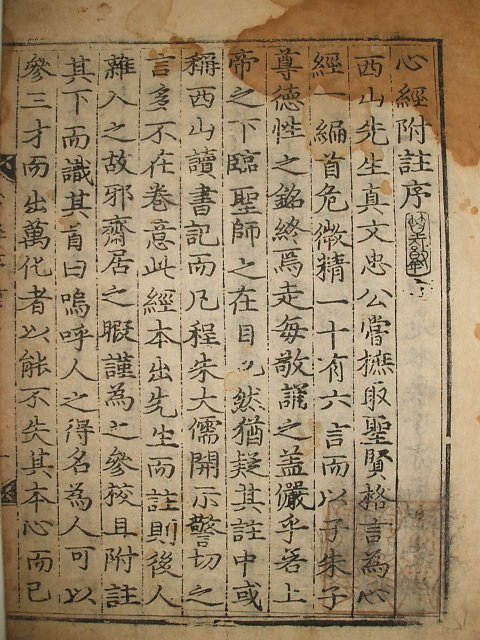 心經附註序
西山先生真文忠公嘗摭取聖賢格言為心
經一編首危微精一十有六言而以子朱子
尊德性之銘終焉走每敬誦之蓋儼乎若上
帝之下臨聖師之在目也然猶疑其註中或
稱西山讀書記而凡程朱大儒開示警切之
言多不在卷意此經本出先生而註則後人
雜入之故邪齋居之暇謹為之參校且附註
其下而識其首曰嗚呼人之得名為人可以
參三才而出萬化者以能不失其本心而已